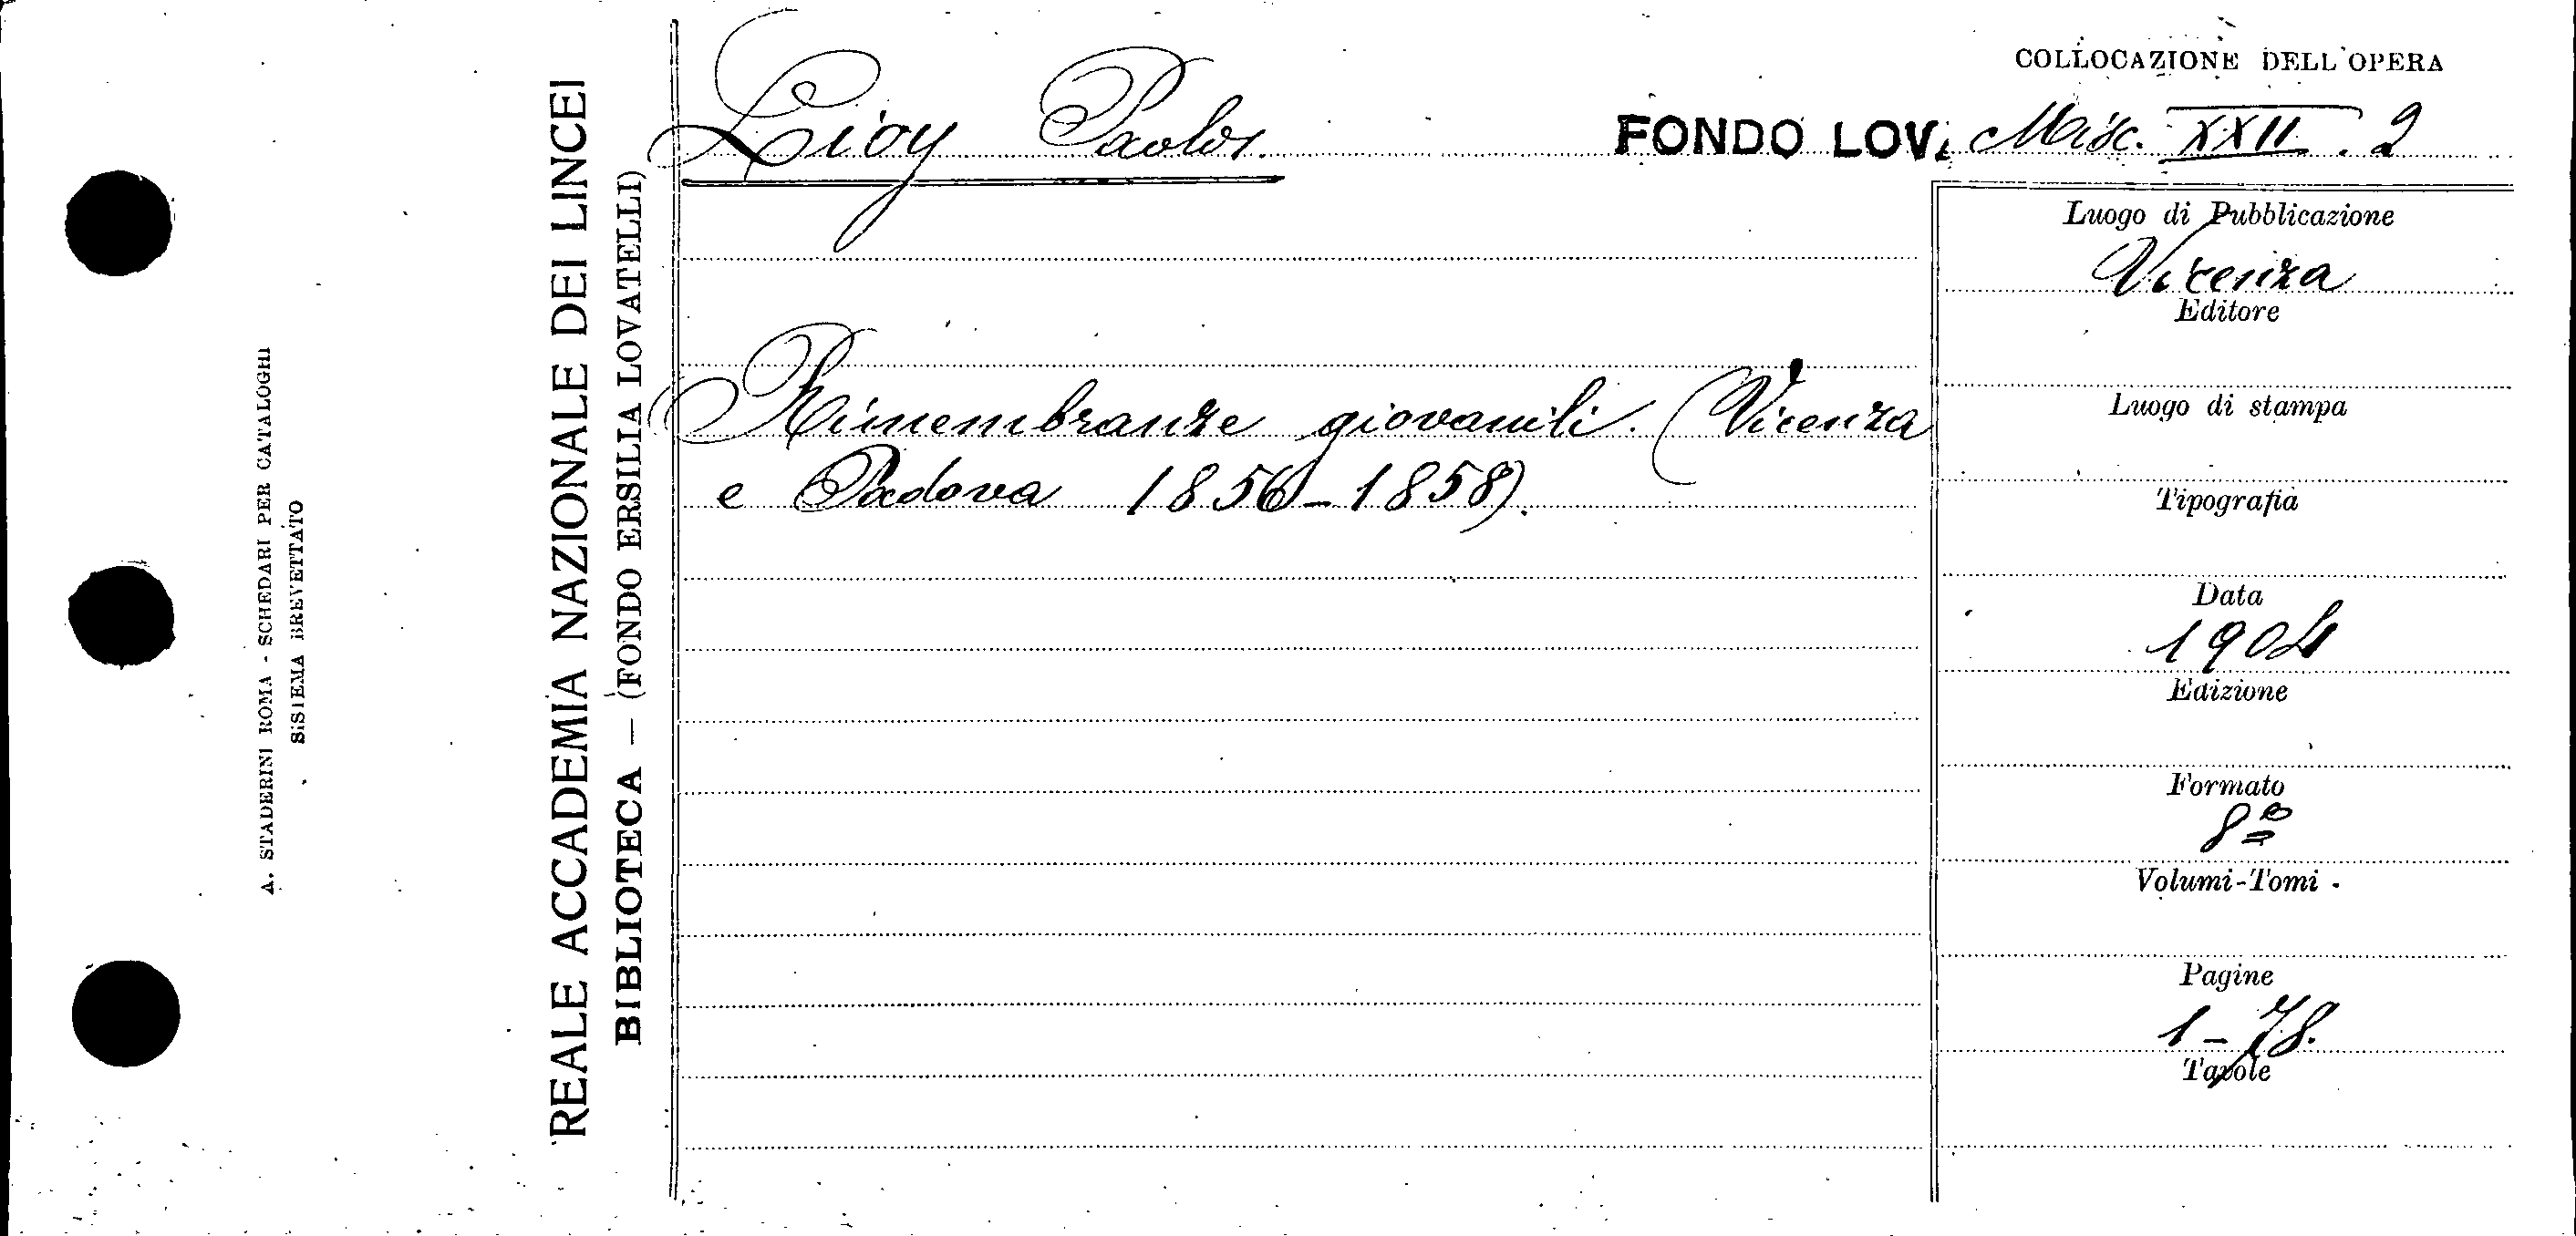 A. STADERINI ROMA - SCHEDARI PER CATALOGHI
SISTEMA BREVETTATO
REALE ACCADEMIA NAZIONALE DEI LINCEI
BIBLIOTECA — (FONDO ERSILIA LOVATELLI)
COLLOCAZIONE DELL'OPERA
Lioy Paolo.
FONDO LOV. Misc. XXII. 2
Rimembranze giovanili. (Vicenza
e Padova 1856-1858).
Luogo di Pubblicazione
Vicenza
Editore
Luogo di stampa
Tipografia
Data
1904
Edizione
Formato
8º
Volumi-Tomi
Pagine
1-78.
Tavole